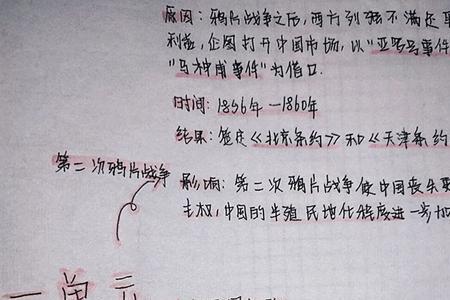 原因：鸦片战争之后，西方列强不满足
利益，企图打开中国市场，以“亚罗号事件
“马神甫事件”为借口.
时间：1856年—1860年
结果：签定《北京条约》和《天津条约
第二次鸦片战争
影响：第二次鸦片战争使中国丧失
主权，中国的半殖民地化程度进一步加
一单元